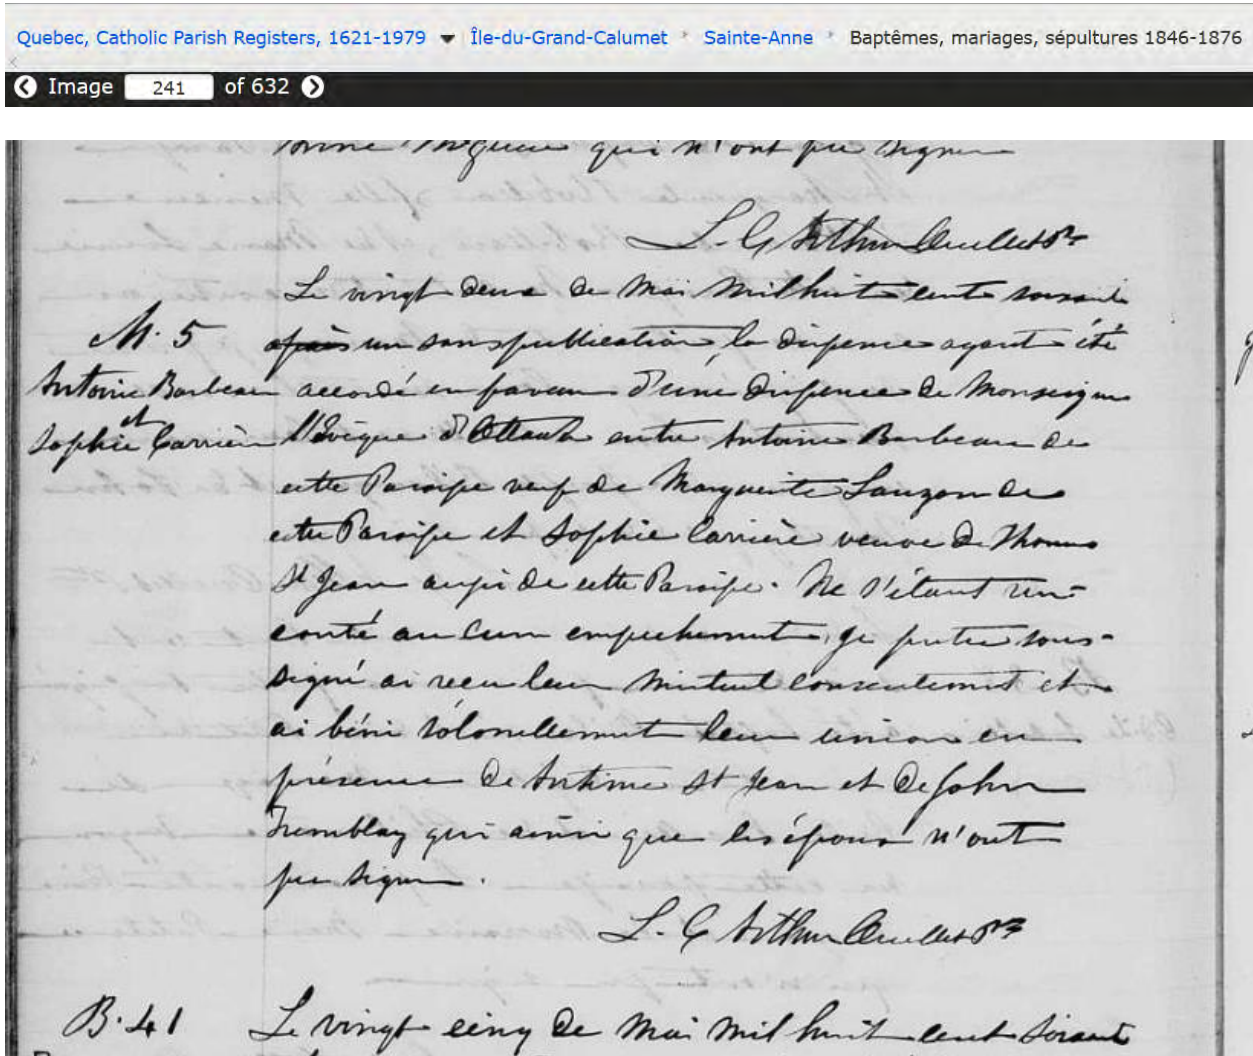 Quebec, Catholic Parish Registers, 1621-1979 Île-du-Grand-Calumet Sainte-Anne Baptêmes, mariages, sépultures 1846-1876
Image 241 of 632
qui n'ont pu signer
L. G Arthur Ouellet Ptre
Le vingt deux de Mai mil huit cents soixante
M. 5
après un sans publication, la dispence ayant été
Antoine Barbeau
accordé en faveur d'une dispence de Monseigneur
et
Sophie Carrière
l'Evèque d'Ottawa entre Antoine Barbeau de
cette Paroisse veuf de Marguerite Lauzon de
cette Paroisse et Sophie Carrière veuve de Thomas
St Jean aussi de cette Paroisse. Ne s'étant ren-
conté aucun empechement, je pretre sous-
signé ai recu leur mutuel consentement et
ai béni solonellement leur union en
présence de Antime St Jean et de John
Tremblay qui ainsi que les époux n'ont
pu signer.
L. G Arthur Ouellet Ptre
B. 41
Le vingt cinq de Mai mil huit cent soixante